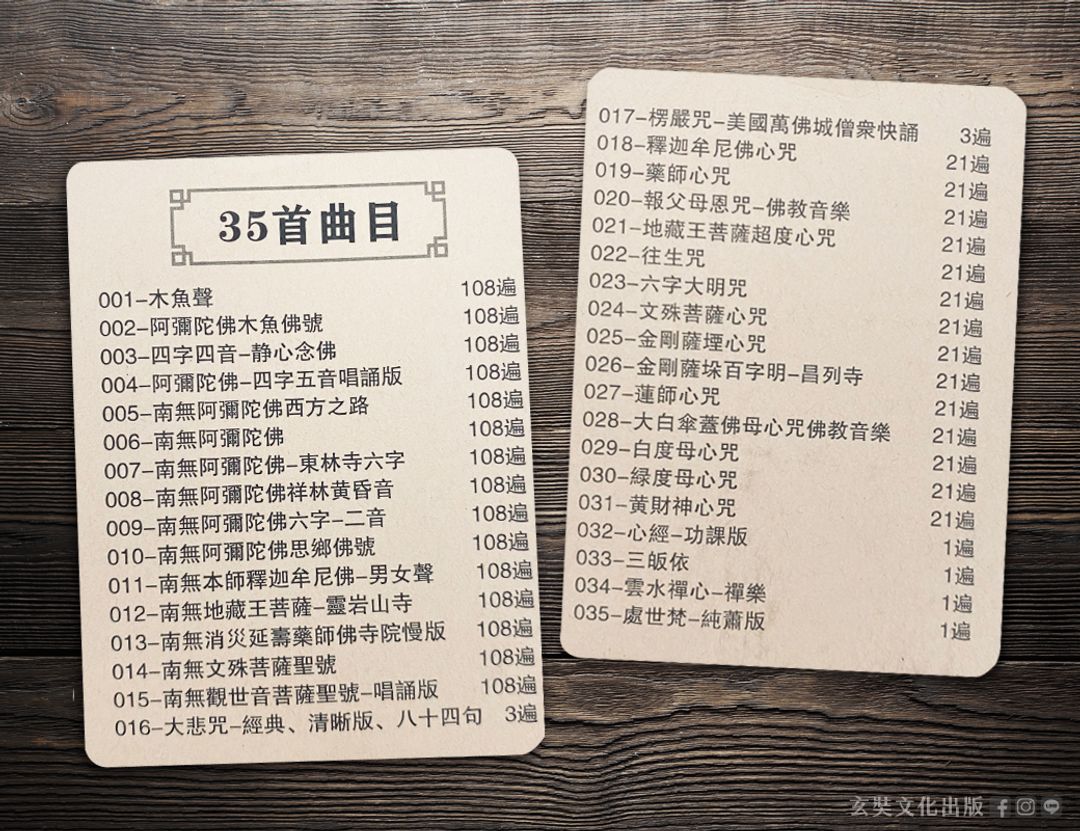 35首曲目
001–木魚聲 108遍
002–阿彌陀佛木魚佛號 108遍
003–四字四音–静心念佛 108遍
004–阿彌陀佛–四字五音唱誦版 108遍
005–南無阿彌陀佛西方之路 108遍
006–南無阿彌陀佛 108遍
007–南無阿彌陀佛–東林寺六字 108遍
008–南無阿彌陀佛祥林黄昏音 108遍
009–南無阿彌陀佛六字–二音 108遍
010–南無阿彌陀佛思鄉佛號 108遍
011–南無本師釋迦牟尼佛–男女聲 108遍
012–南無地藏王菩薩–靈岩山寺 108遍
013–南無消災延壽藥師佛寺院慢版 108遍
014–南無文殊菩薩聖號 108遍
015–南無觀世音菩薩聖號–唱誦版 108遍
016–大悲咒–經典、清晰版、八十四句 3遍
017–楞嚴咒–美國萬佛城僧衆快誦 3遍
018–釋迦牟尼佛心咒 21遍
019–藥師心咒 21遍
020–報父母恩咒–佛教音樂 21遍
021–地藏王菩薩超度心咒 21遍
022–往生咒 21遍
023–六字大明咒 21遍
024–文殊菩薩心咒 21遍
025–金剛薩堙心咒 21遍
026–金剛薩垛百字明–昌列寺 21遍
027–蓮師心咒 21遍
028–大白傘蓋佛母心咒佛教音樂 21遍
029–白度母心咒 21遍
030–緑度母心咒 21遍
031–黄財神心咒 21遍
032–心經–功課版 1遍
033–三皈依 1遍
034–雲水禪心–禪樂 1遍
035–處世梵–純蕭版 1遍
玄奘文化出版